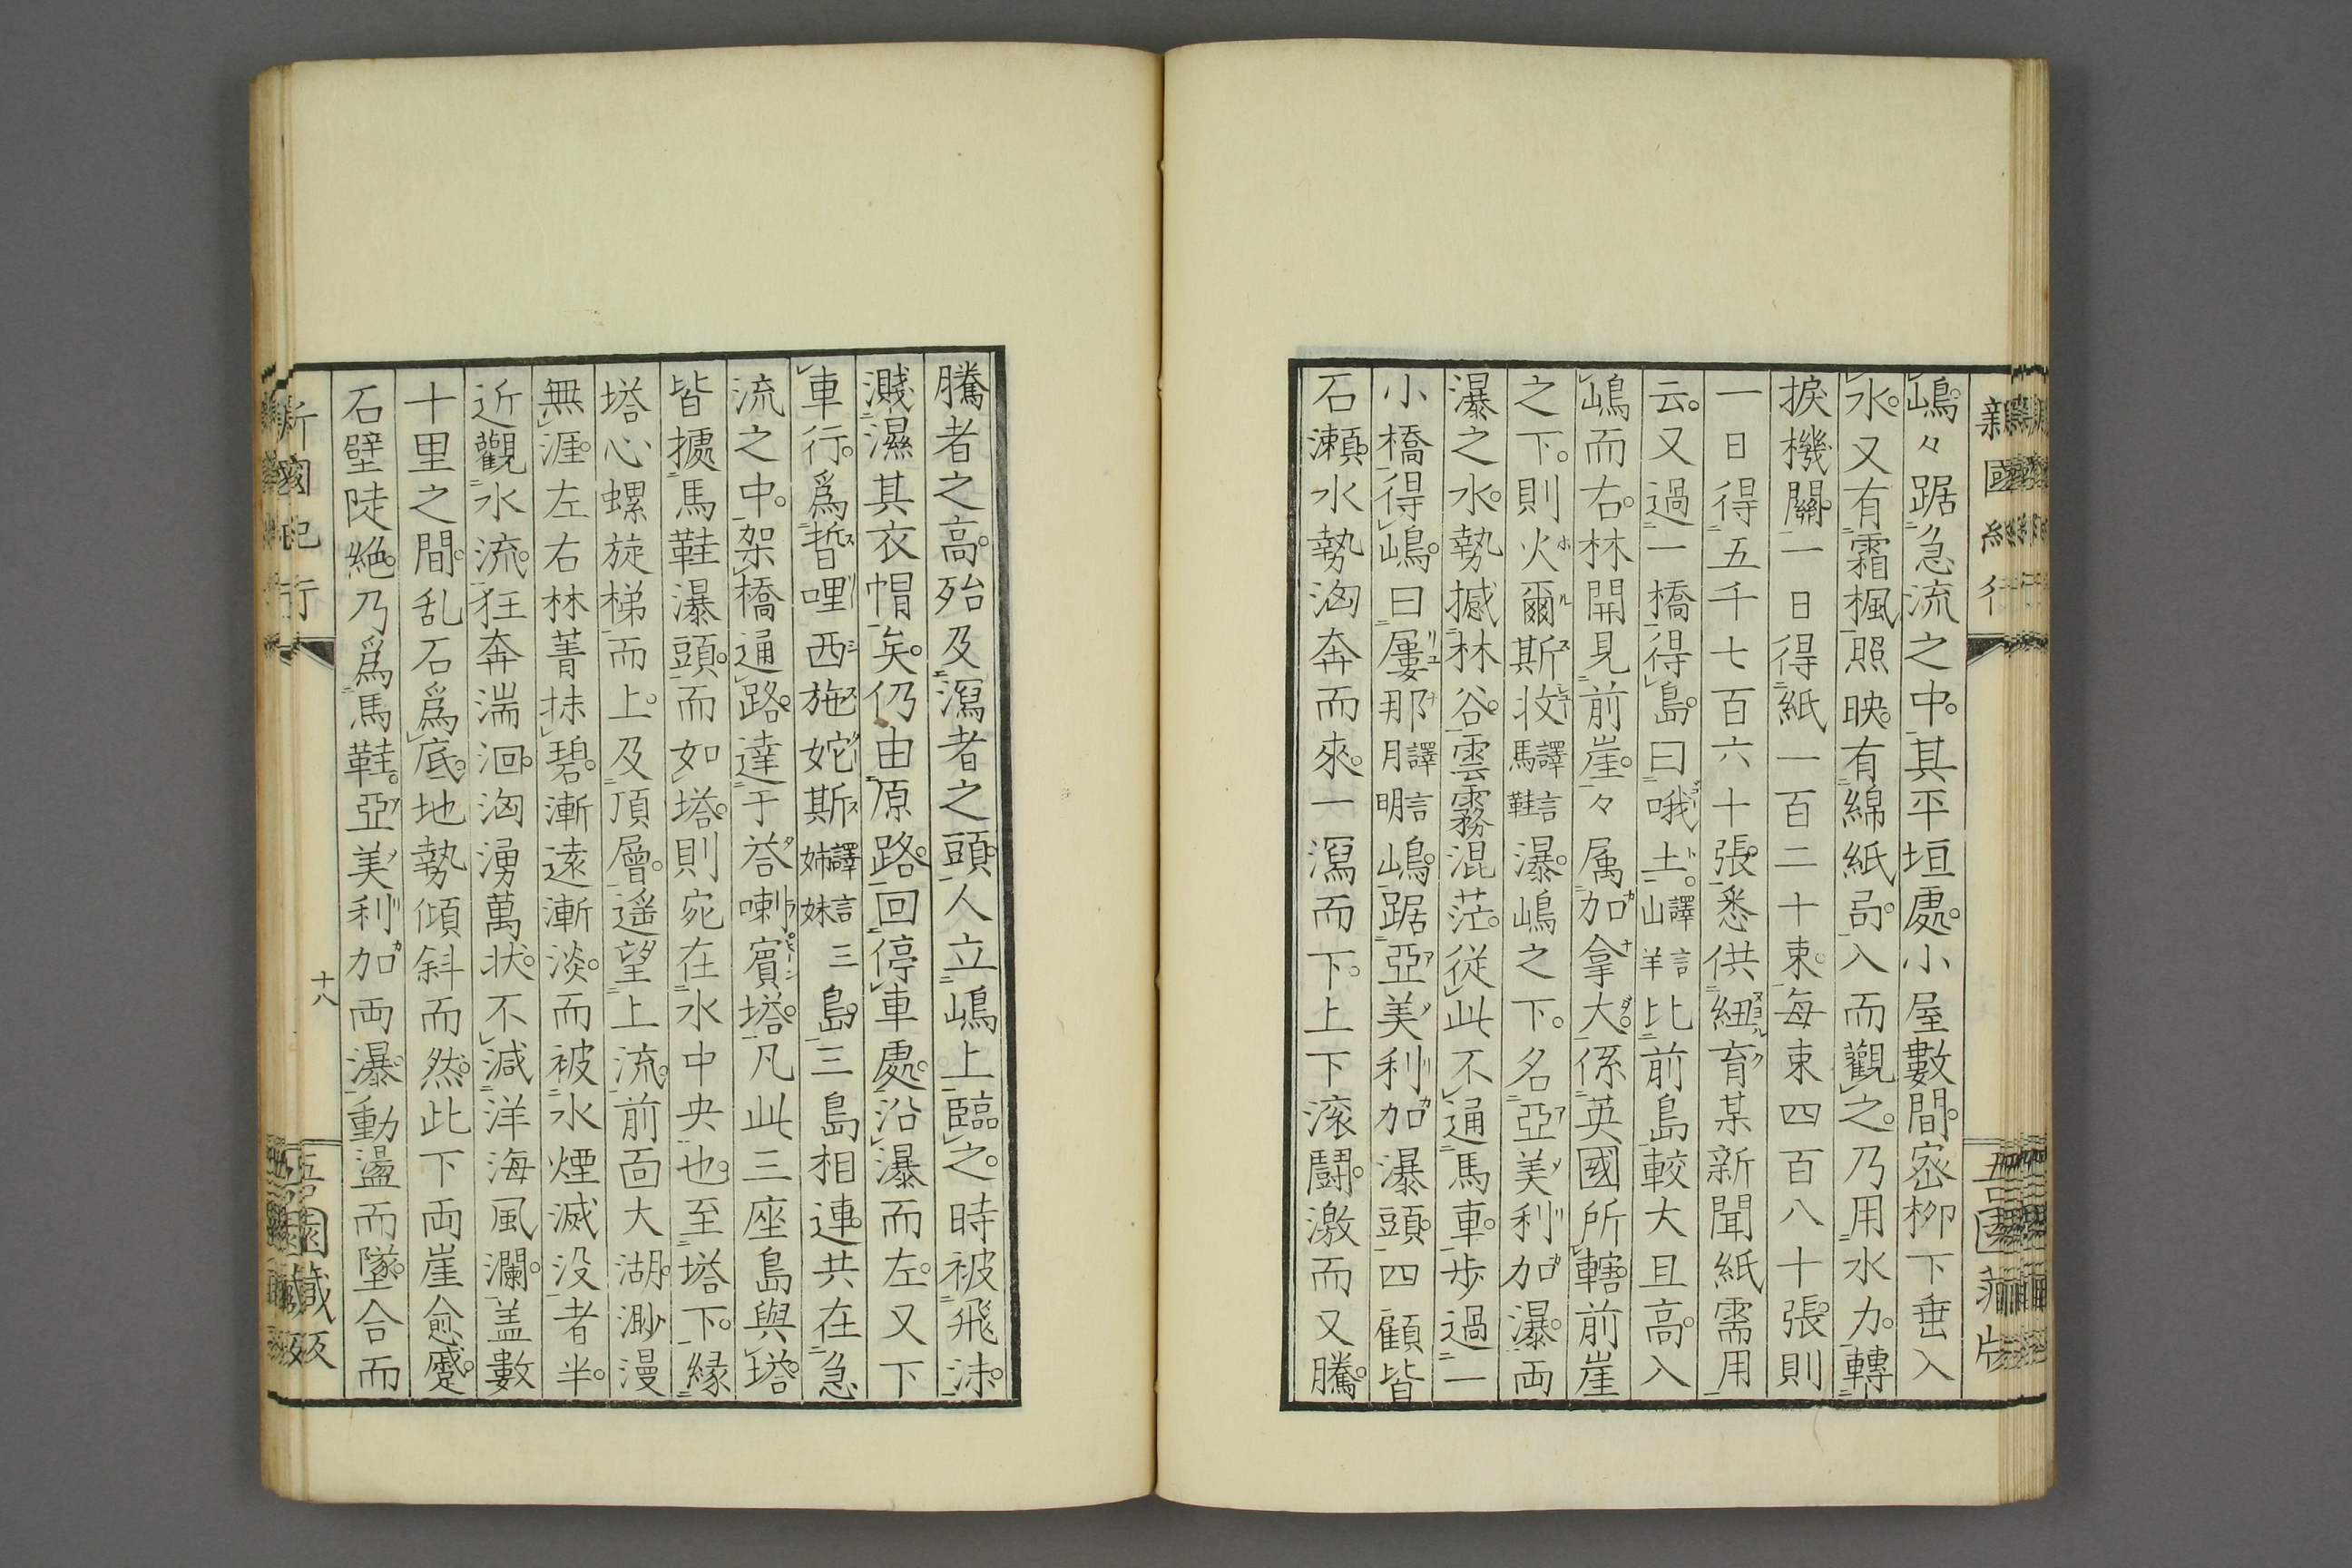 嶋々踞急流之中。其平垣處。小屋數間。密柳下垂入
水。又有霜楓照映。有綿紙局。入而觀之。乃用水力。轉
捩機關。一日得紙一百二十束。每束四百八十張。則
一日得五千七百六十張。悉供紐育某新聞紙需用
云。又過一橋得島。曰哦土。譯言山羊比前島較大且高。入
嶋而右。林開見前崖。々属加拿大。係英國所轄。前崖
之下。則火爾斯妝譯言馬鞋瀑。嶋之下。名亞美利加瀑。両
瀑之水。勢撼林谷。雲霧混茫。從此不通馬車。步過一
小橋得嶋。曰屢那譯言月明嶋。嶋踞亞美利加瀑頭。四顧皆
石瀨。水勢洶奔而來。一瀉而下。上下滚鬪。激而又騰。
騰者之高。殆及瀉者之頭。人立嶋上臨之。時被飛沫。
濺濕其衣帽矣。仍由原路。回停車處。沿瀑而左。又下
車行。爲晢哩西施姹斯譯言姉妹三島。三島相連。共在急
流之中。架橋通路。達于荅喇賓塔。凡此三座島與塔。
皆據馬鞋瀑頭。而如塔。則宛在水中央也。至塔下。緣
塔心螺旋梯而上。及頂層。遥望上流。前面大湖。渺漫
無涯。左右林菁抹碧。漸遠漸淡。而被水煙滅没者半。
近觀水流。狂奔湍洄。洶湧萬状。不減洋海風瀾。盖數
十里之間。乱石爲底。地勢傾斜而然。此下両崖愈蹙。
石壁陡絶。乃爲馬鞋。亞美利加両瀑。動盪而墜。合而
新國紀行
十八